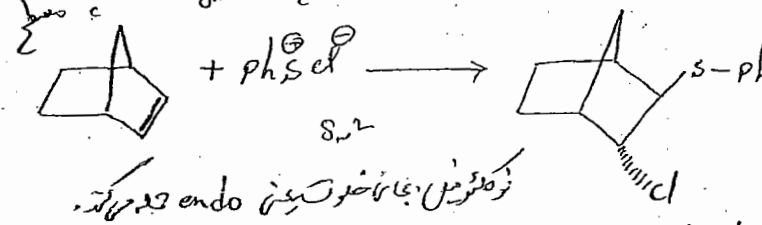 + ph S⊕ cl⊖ ⟶ S-ph
SN2
cl
نوکلئوفیل از جای خلوت یعنی endo حمله می‌کند.